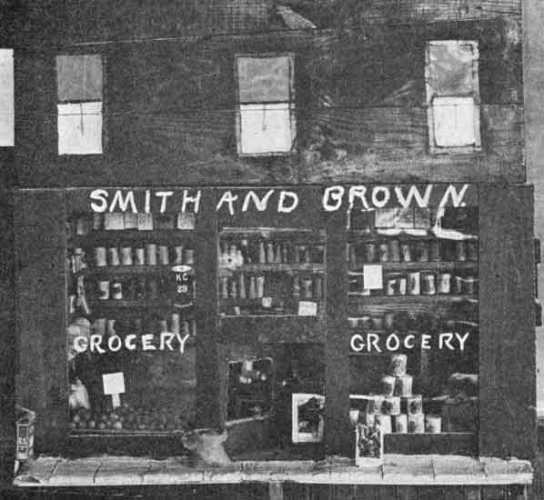 SMITH AND BROWN.
KC
25
GROCERY GROCERY